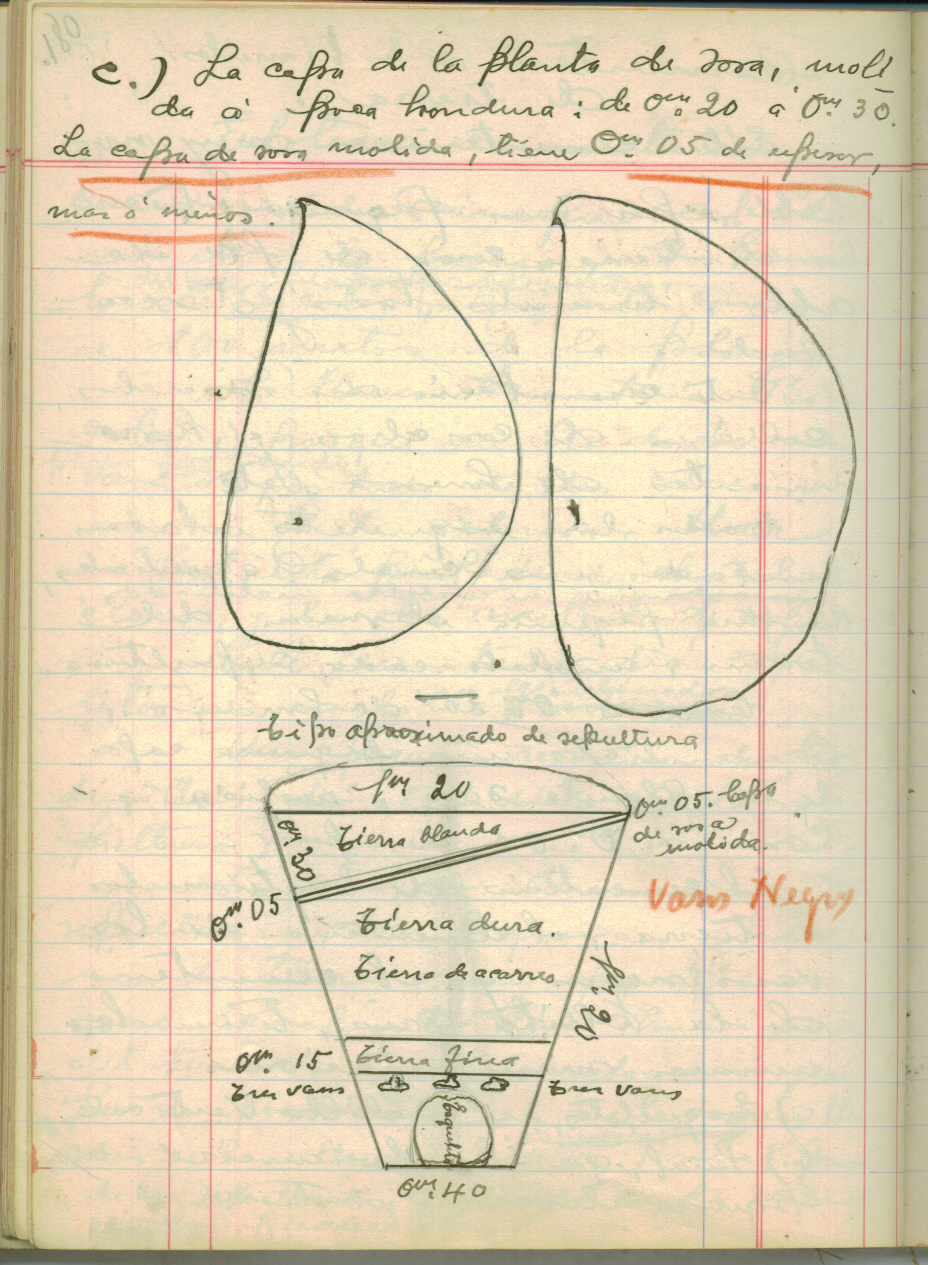 c.) La capa de la planta de sora, moli
da á poca hondura: de 0m. 20 á 0m. 30.
La capa de sora molida, tiene 0m. 05 de espesor,
mas ó menos.
Tipo aproximado de sepultura
1m. 20
0m. 05. Capa
de sora
molida.
0m. 30
Tierra blanda
0m. 05
Vaso Negro
Tierra dura.
Tierra de acarreo
1m. 20
0m. 15
Tierra fina
Tres vasos
Tres vasos
0m. 40